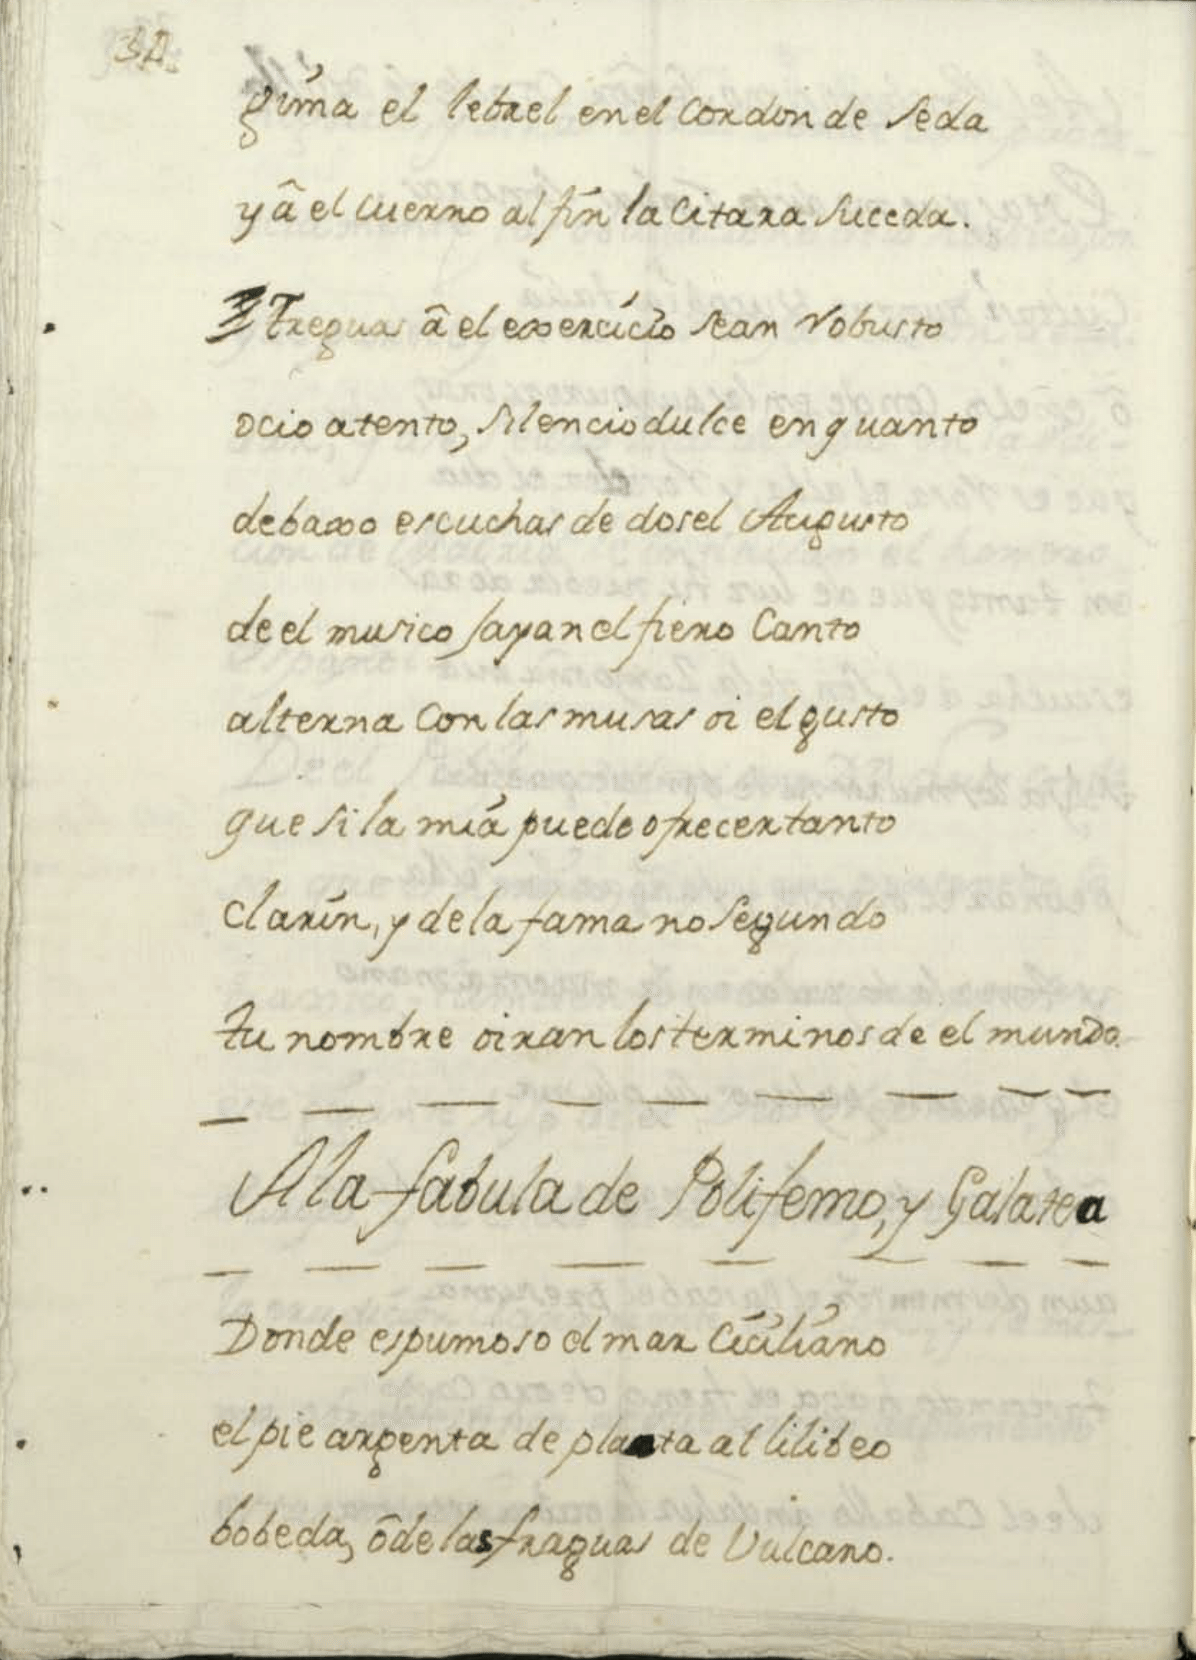 gima el lebrel en el Cordon de Seda
y â el cuerno al fin la Citara Suceda.
Treguas â el exercicio sean robusto
ocio atento, Silencio dulce en quanto
debaxo escuchas de dosel Augusto
de el musico Jayan el fiero Canto
alterna Con las musas oi el gusto
que Si la mia puede ofrecer tanto
clarin, y de la fama no Segundo
tu nombre oiran los terminos de el mundo.
A la fabula de Polifemo, y Galatea
Donde espumoso el mar Ciciliano
el pie argenta de plata al lilibeo
bobeda, ô de las fraguas de Vulcano.